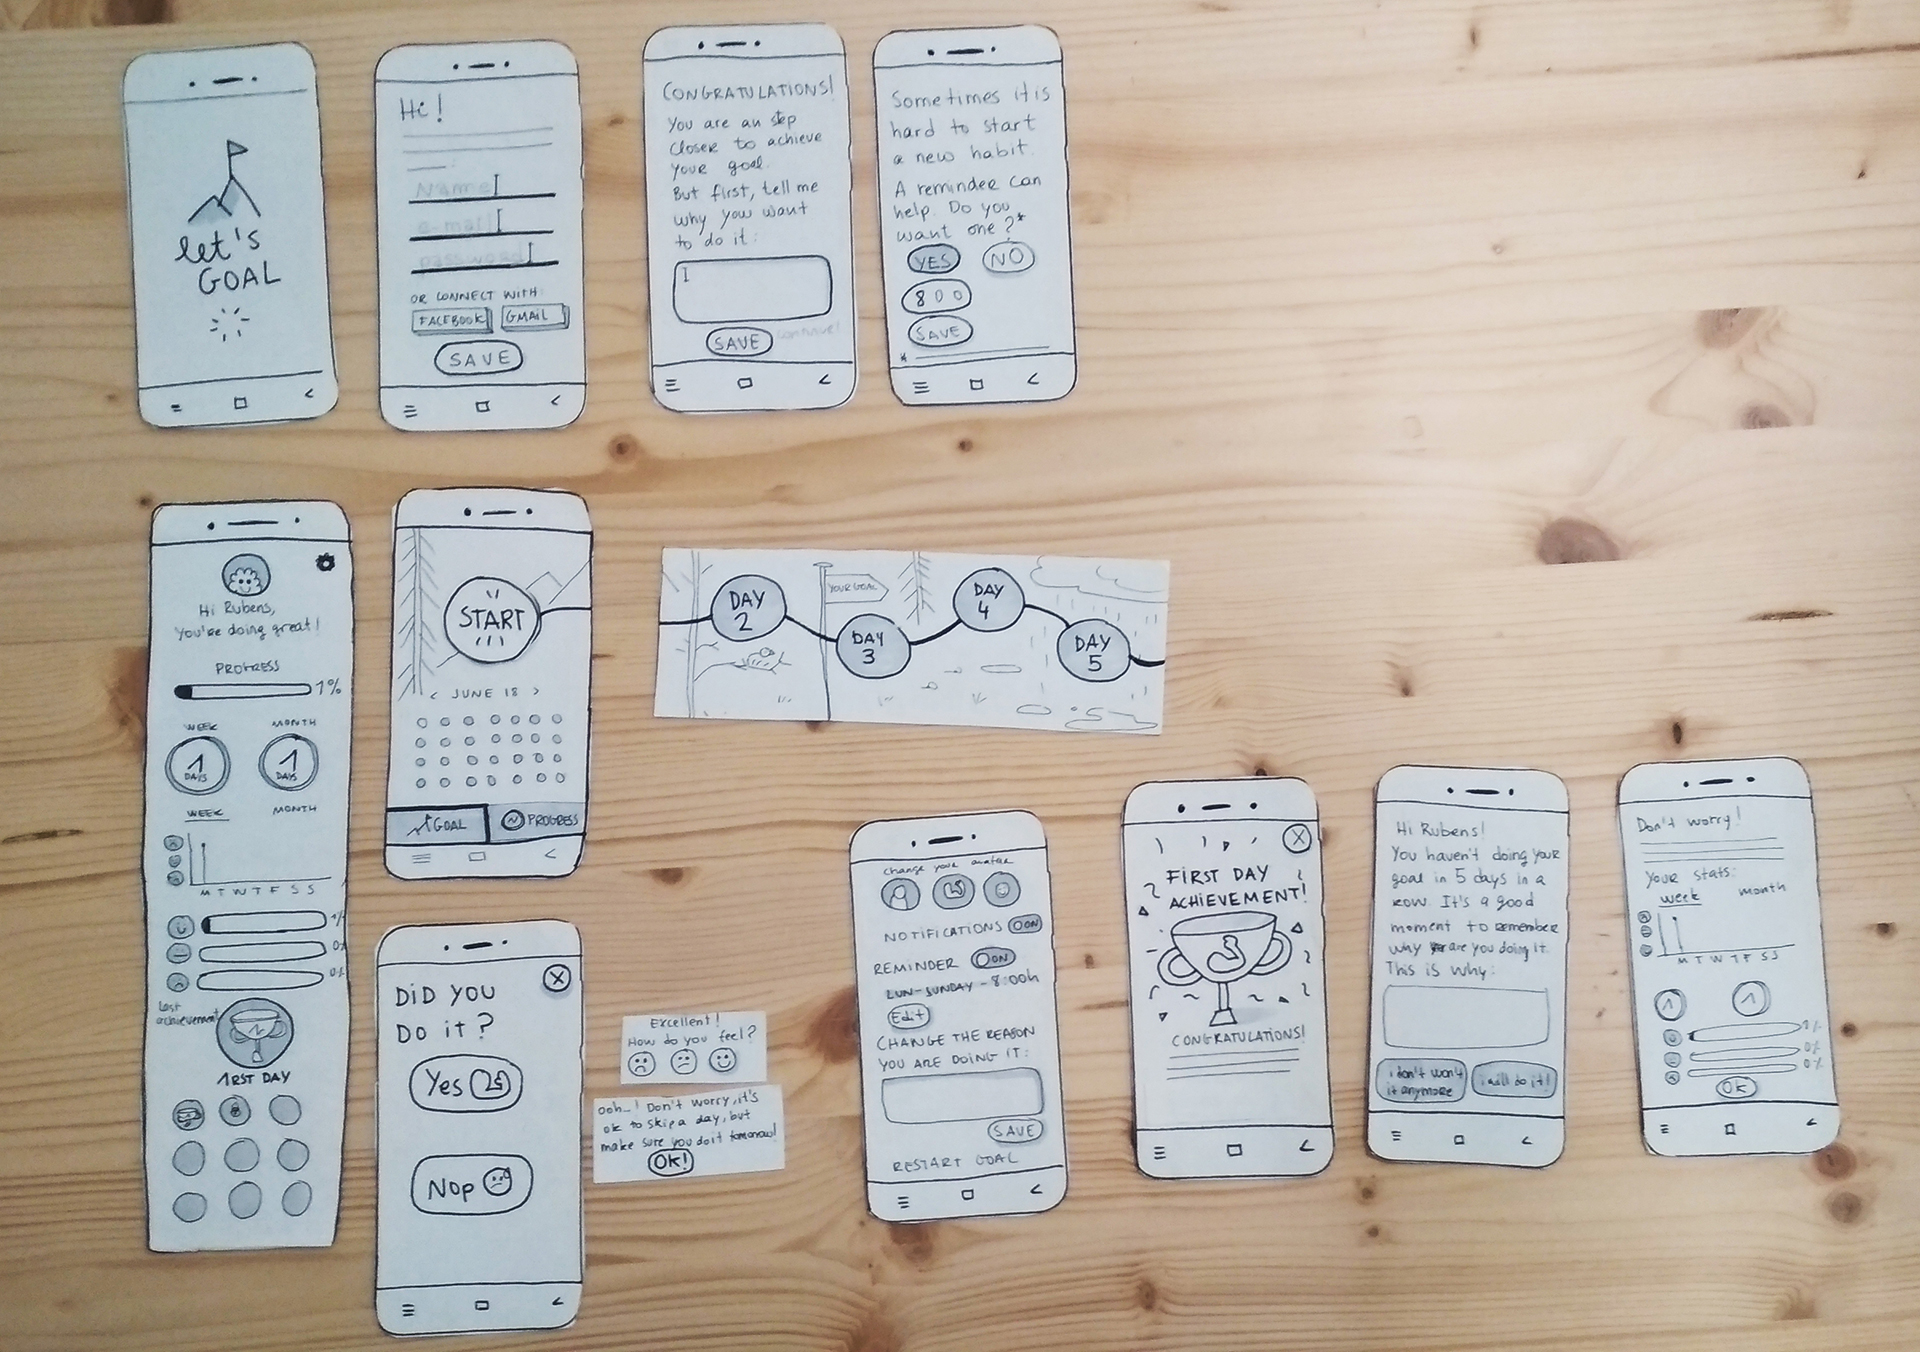 let's
GOAL
Hi!
Name
e-mail
password
OR CONNECT WITH:
FACEBOOK GMAIL
SAVE
CONGRATULATIONS!
You are an step
closer to achieve
your goal.
But first, tell me
why you want
to do it:
SAVE continue!
Sometimes it is
hard to start
a new habit.
A reminder can
help. Do you
want one?*
YES NO
8 0 0
SAVE
*
Hi Rubens,
You're doing great!
PROGRESS
1%
WEEK MONTH
1 1
DAYS DAYS
WEEK MONTH
M T W T F S S
1%
0%
0%
Last
achievement
1RST DAY
START
< JUNE 18 >
GOAL PROGRESS
DAY
2
YOUR GOAL
DAY
3
DAY
4
DAY
5
DID YOU
DO it?
X
Yes
Nop
Excellent!
How do you feel?
ooh_! Don't worry, it's
ok to skip a day, but
make sure you do it tomorrow!
OK!
change your avatar
NOTIFICATIONS ON
REMINDER ON
LUN-SUNDAY - 8:00h
Edit
CHANGE THE REASON
YOU ARE DOING IT:
SAVE
RESTART GOAL
X
FIRST DAY
ACHIEVEMENT!
CONGRATULATIONS!
Hi Rubens!
You haven't doing your
goal in 5 days in a
row. It's a good
moment to remember
why are you doing it.
This is why:
i don't want
it anymore
i will do it!
Don't worry!
Your stats:
week month
M T W T F S S
1 1
1%
0%
0%
OK